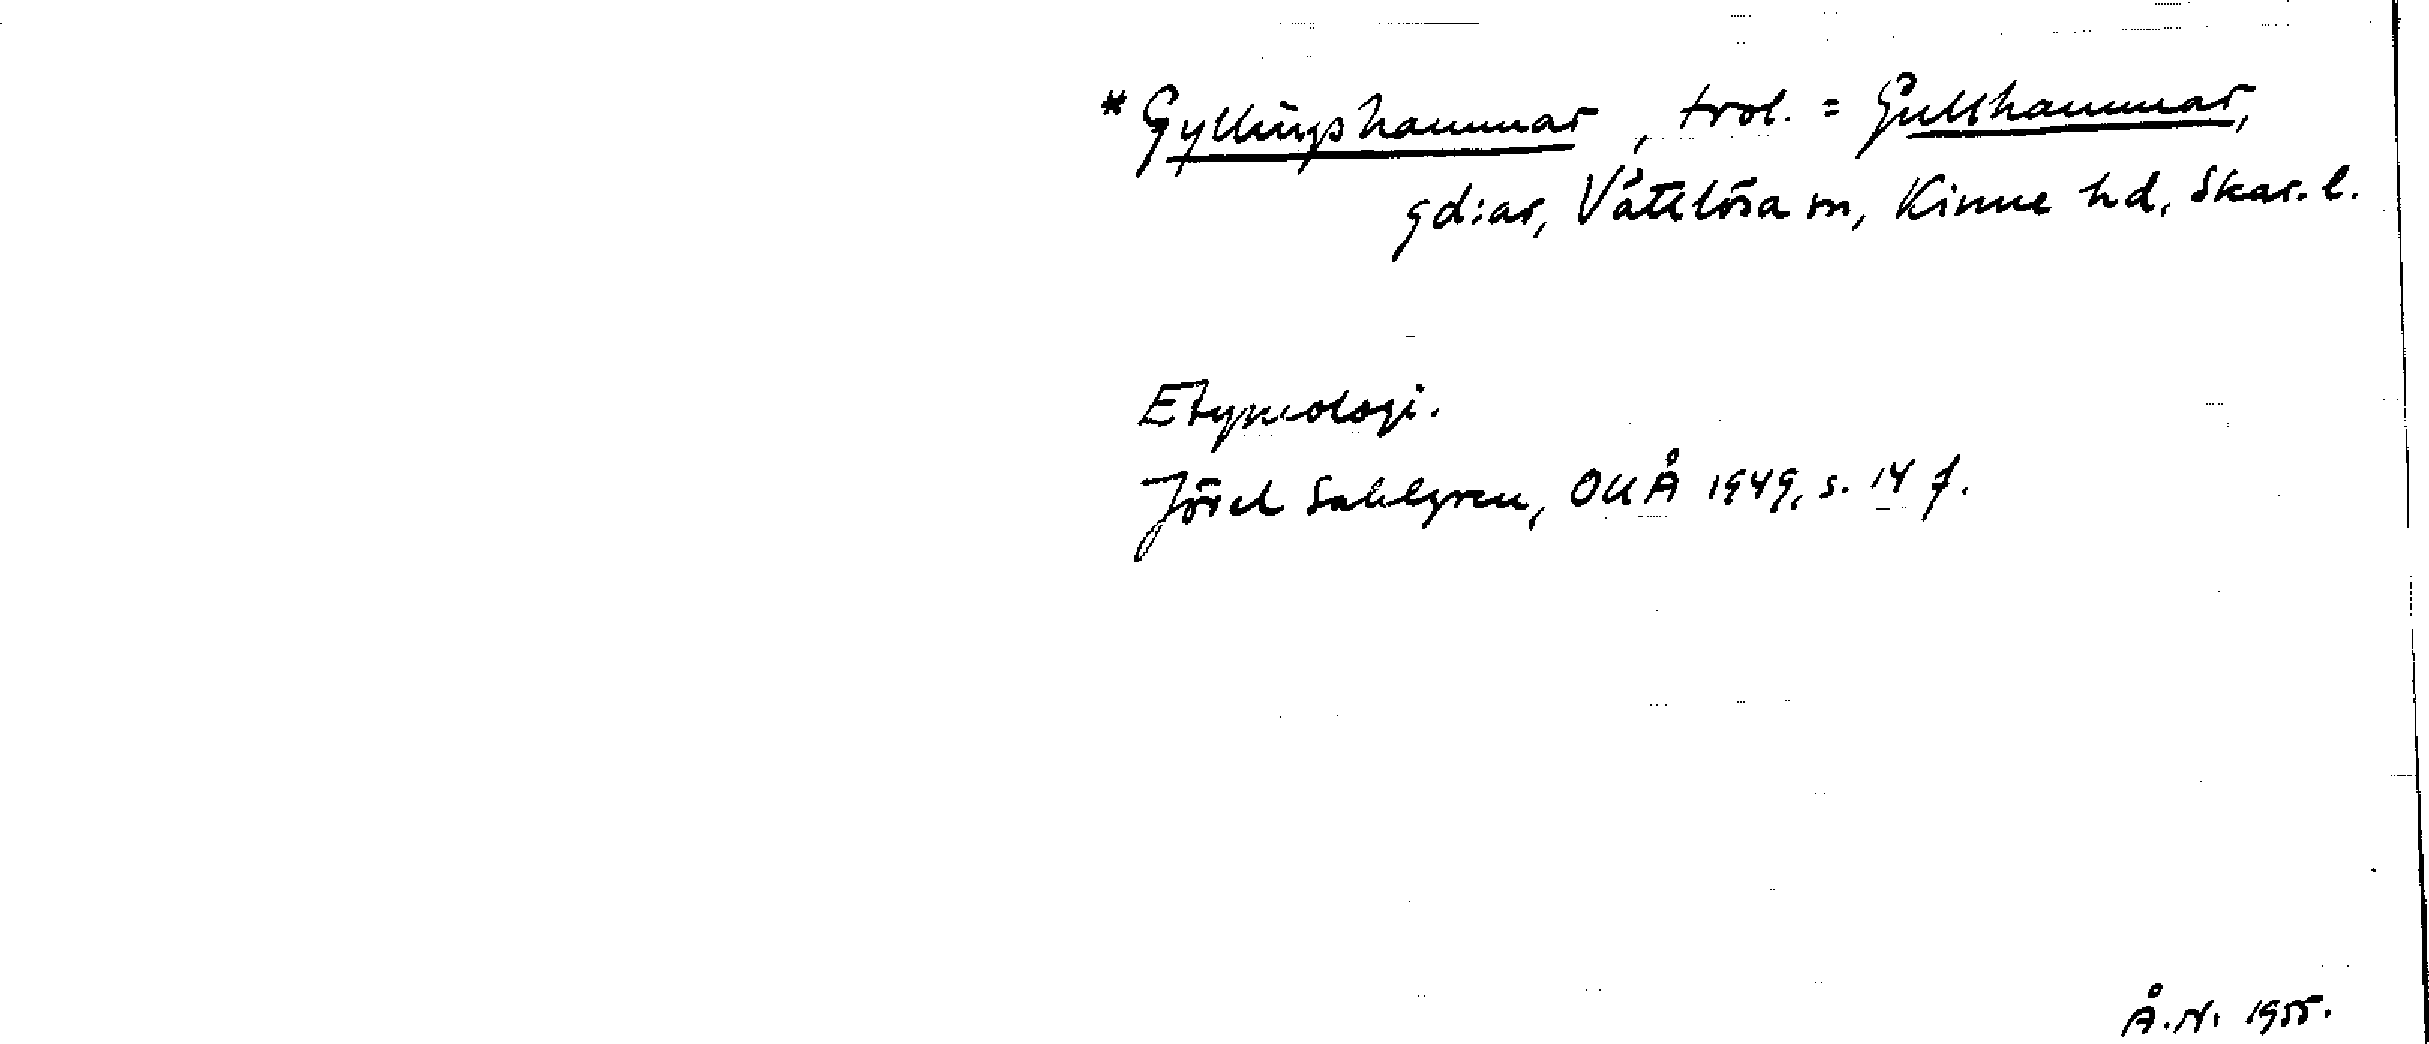 * Gyllingshammar, trol. = Gullhammar,
gd:ar, Vättlösa sn, Kinne hd, Skar. l.
Etymologi.
Jöran Sahlgren, OUÅ 1949, s. 14 f.
Å.N. 1955.